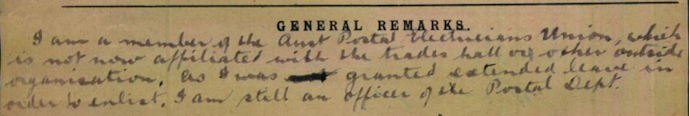 GENERAL REMARKS.
I am a member of the Aust Postal Electricians Union, which
is not now affiliated with the trades hall or other outside
organisation, as I was granted extended leave in
order to enlist. I am still an officer of the Postal Dept.